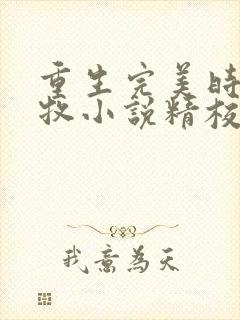 重生完美時
牧小說精校
我意為天